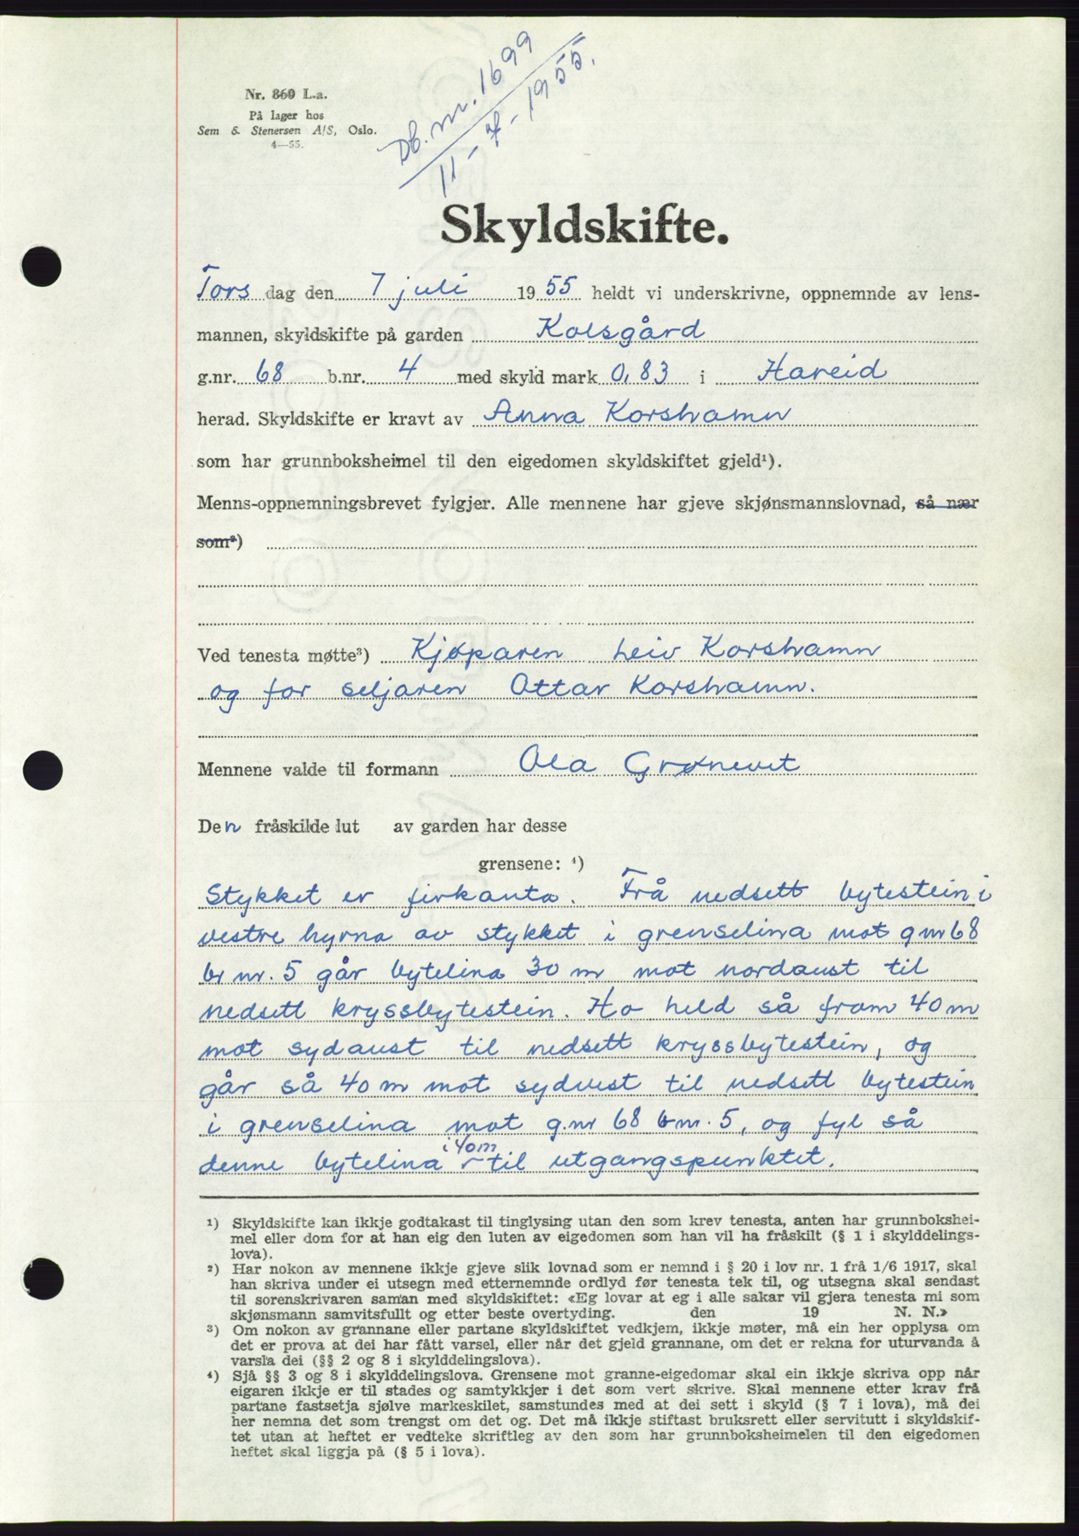 Db. nr. 1699
11 - 7 - 1955.
Nr. 860 L.a.
På lager hos
Sem & Stenersen A/S, Oslo.
4—55.
Skyldskifte.
Tors dag den 7 juli 1955 heldt vi underskrivne, oppnemnde av lens-
mannen, skyldskifte på garden Kolsgård
g.nr. 68 b.nr. 4 med skyld mark 0,83 i Hareid
herad. Skyldskifte er kravt av Anna Korshamn
som har grunnboksheimel til den eigedomen skyldskiftet gjeld¹).
Menns-oppnemningsbrevet fylgjer. Alle mennene har gjeve skjønsmannslovnad, så nær
som²)
Ved tenesta møtte³) Kjøparen Leiv Korshamn
og for seljaren Ottar Korshamn.
Mennene valde til formann Ola Grønevet
Den fråskilde lut av garden har desse
grensene: ⁴)
Stykket er firkanta. Frå nedsett bytestein i
vestre hyrna av stykket i grenselina mot g nr 68
br nr. 5 går bytelina 30 m mot nordaust til
nedsett kryssbytestein. Ho held så fram 40 m
mot sydaust til nedsett kryssbytestein, og
går så 40 m mot sydvest til nedsett bytestein
i grenselina mot g.nr 68 b nr. 5, og fyl så
denne bytelina i 40m til utgangspunktet.
¹) Skyldskifte kan ikkje godtakast til tinglysing utan den som krev tenesta, anten har grunnbokshei-
mel eller dom for at han eig den luten av eigedomen som han vil ha fråskilt (§ 1 i skylddelings-
lova).
²) Har nokon av mennene ikkje gjeve slik lovnad som er nemnd i § 20 i lov nr. 1 frå 1/6 1917, skal
han skriva under ei utsegn med etternemnde ordlyd før tenesta tek til, og utsegna skal sendast
til sorenskrivaren saman med skyldskiftet: «Eg lovar at eg i alle sakar vil gjera tenesta mi som
skjønsmann samvitsfullt og etter beste overtyding. den 19 N. N.»
³) Om nokon av grannane eller partane skyldskiftet vedkjem, ikkje møter, må ein her opplysa om
det er prova at dei har fått varsel, eller når det gjeld grannane, om det er rekna for uturvanda å
varsla dei (§§ 2 og 8 i skylddelingslova).
⁴) Sjå §§ 3 og 8 i skylddelingslova. Grensene mot granne-eigedomar skal ein ikkje skriva opp når
eigaren ikkje er til stades og samtykkjer i det som vert skrive. Skal mennene etter krav frå
partane fastsetja sjølve markeskilet, samstundes med at dei sett i skyld (§ 7 i lova), må dei
her nemna det som trengst om det og. Det må ikkje stiftast bruksrett eller servitutt i skyldskif-
tet utan at heftet er vedteke skriftleg av den som har grunnboksheimelen til den eigedomen
heftet skal liggja på (§ 5 i lova).